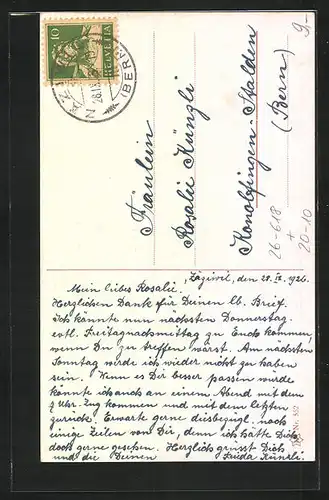 10
HELVETIA
(BERN)
9.-
Fräulein
Rosalie Künzli
Konolfingen-Stalden
(Bern)
26-618
+
20-10
Zäziwil, den 28. IX. 1926.
Mein liebes Rosalie,
Herzlichen Dank für Deinen lb. Brief.
Ich könnte nun nächsten Donnerstag
evtl. Freitagnachmittag zu Euch kommen,
wenn Du zu treffen wärst. Am nächsten
Sonntag werde ich wieder nicht zu haben
sein. Wenn es Dir besser passen würde
könnte ich auch an einem Abend mit dem
7 Uhr Zug kommen und mit dem letzten
zurück. Erwarte gerne diesbezügl. noch
einige Zeilen von Dir, denn ich hätte Dich
doch gerne gesehen. Herzlich grüsst Dich
und die Deinen Frieda Künzli.